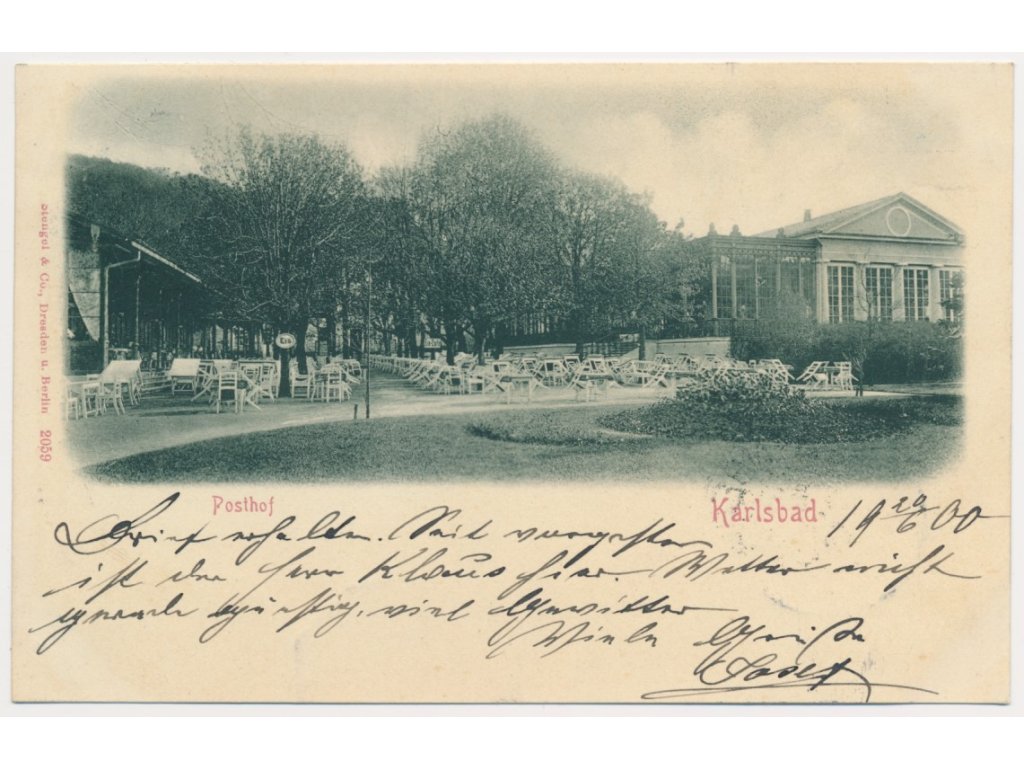 Stengel & Co., Dresden u. Berlin 2059
Eis
Posthof
Karlsbad
19 20/6 00
Brief erhalten. Seit vorgestern
ist der Herr Klaus hier. Wetter nicht
gerade günstig, viel Gewitter
Viele Grüße
Josef